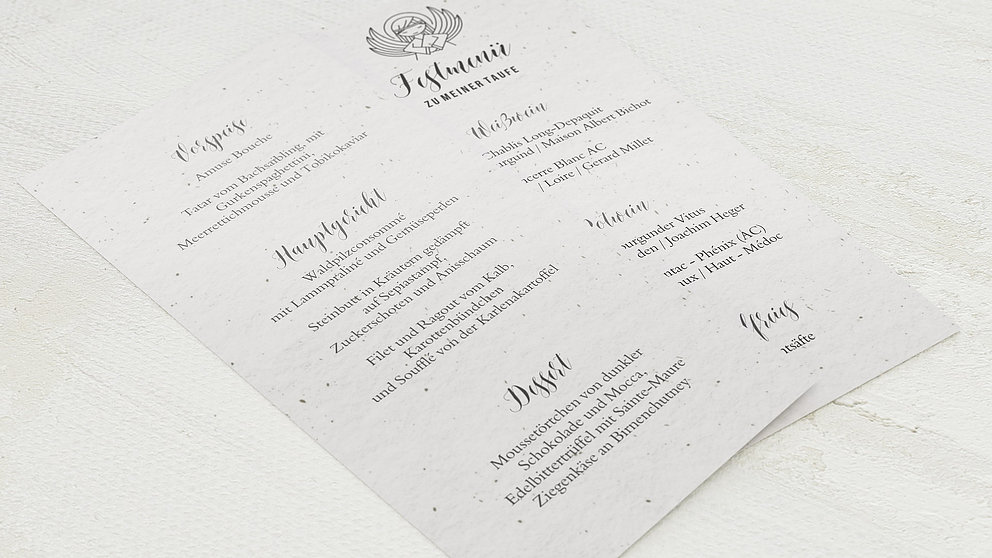 Festmenü
ZU MEINER TAUFE
Vorspeise
Amuse Bouche
Tatar vom Bachsaibling, mit
Gurkenspaghettini,
Meerrettichmousse und Tobikokaviar
Hauptgericht
Waldpilzconsommé
mit Lammpraliné und Gemüseperlen
Steinbutt in Kräutern gedämpft
auf Sepiastampf,
Zuckerschoten und Anisschaum
Filet und Ragout vom Kalb,
Karottenbündchen
und Soufflé von der Karlenakartoffel
Dessert
Moussetörtchen von dunkler
Schokolade und Mocca,
Edelbittertrüffel mit Sainte-Maure
Ziegenkäse an Birnenchutney.
Weißwein
Chablis Long-Depaquit
urgund / Maison Albert Bichot
ncerre Blanc AC
/ Loire / Gerard Millet
otwein
urgunder Vitus
den / Joachim Heger
ntac - Phénix (AC)
ux / Haut - Médoc
freies
htsäfte